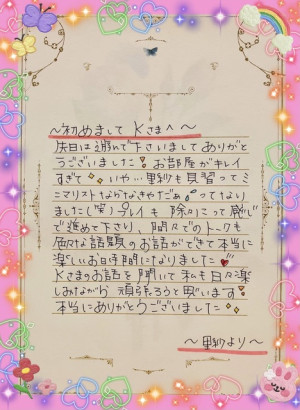 ～初めまして Kさまへ～
先日は遊んで下さいましてありがと
うございました❗お部屋がキレイ
すぎて、いや…里紗も見習ってミ
ニマリストならなきゃだぁ。ってなり
ました(笑)プレイも 除々にって感じ
で進めて下さり、間々でのトークも
色々な話題のお話ができて本当に
楽しいお時間になりました❣
Kさまのお話を聞いて私も日々楽
しみながら 頑張ろうと思います❗
本当にありがとうございました
～里紗より～